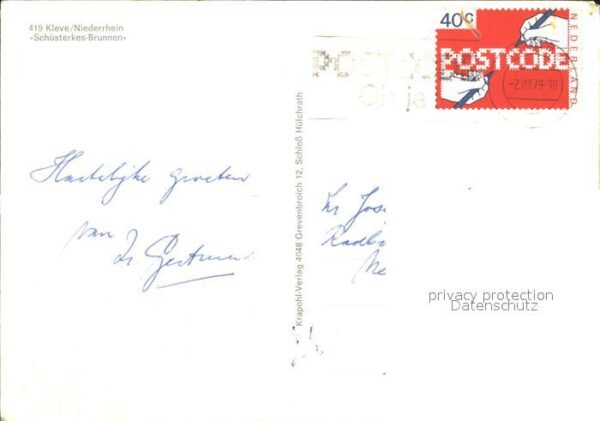 419 Kleve/Niederrhein
«Schüsterkes-Brunnen»
40c
NEDERLAND
POSTCODE
-2.VIII.79-10
Hartelijke groeten
van
Zr. Gertrud
Krapohl-Verlag 4048 Grevenbroich 12, Schloß Hülchrath
Zr Jos
privacy protection
Datenschutz